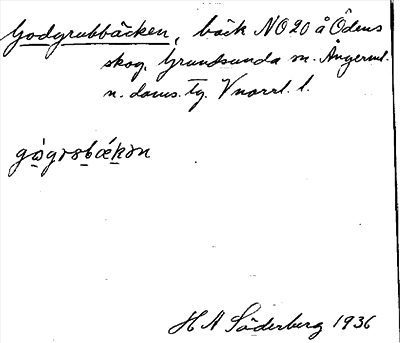 Godgrubbäcken, bäck NO20 å Ödens
skog. Grundsunda sn. Ångerml.
n. doms. Tg. Vnorrl. l.
H A Söderberg 1936